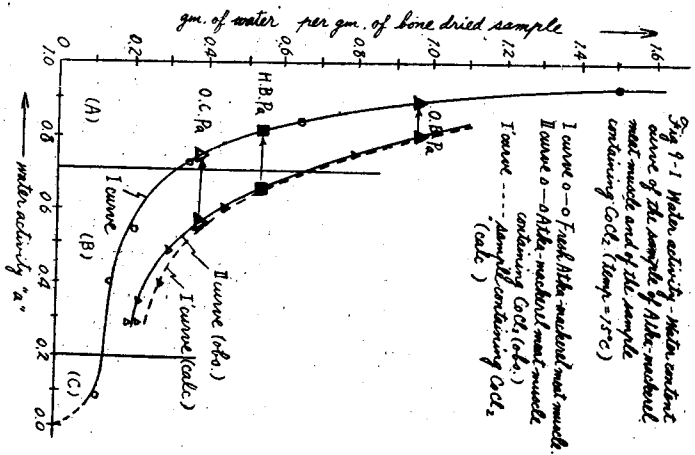 gm. of water per gm. of bone dried sample → A
0 0.2 0.4 0.6 0.8 1.0 1.2 1.4 1.6
1.0
0.8
0.6
0.4
0.2
0.0
← water activity "a"
(A)
(B)
(C)
O.C.Pa
H.B.Pa
O.B.Pa
I curve
II curve (obs.)
I' curve (calc)
Fig 9-1 Water activity-Water content
curve of the sample of Atka-mackerel
meat muscle and of the sample
containing CoCl2 (temp = 15°C)
I curve o—o Fresh Atka-mackerel meat muscle.
II curve o—o Atka-mackerel meat muscle
containing CoCl2 (obs.)
I' curve ---- sample containing CoCl2
(calc)